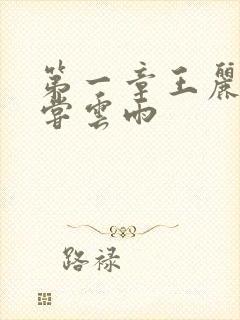 第一章王麗
嘗雲雨
路禄